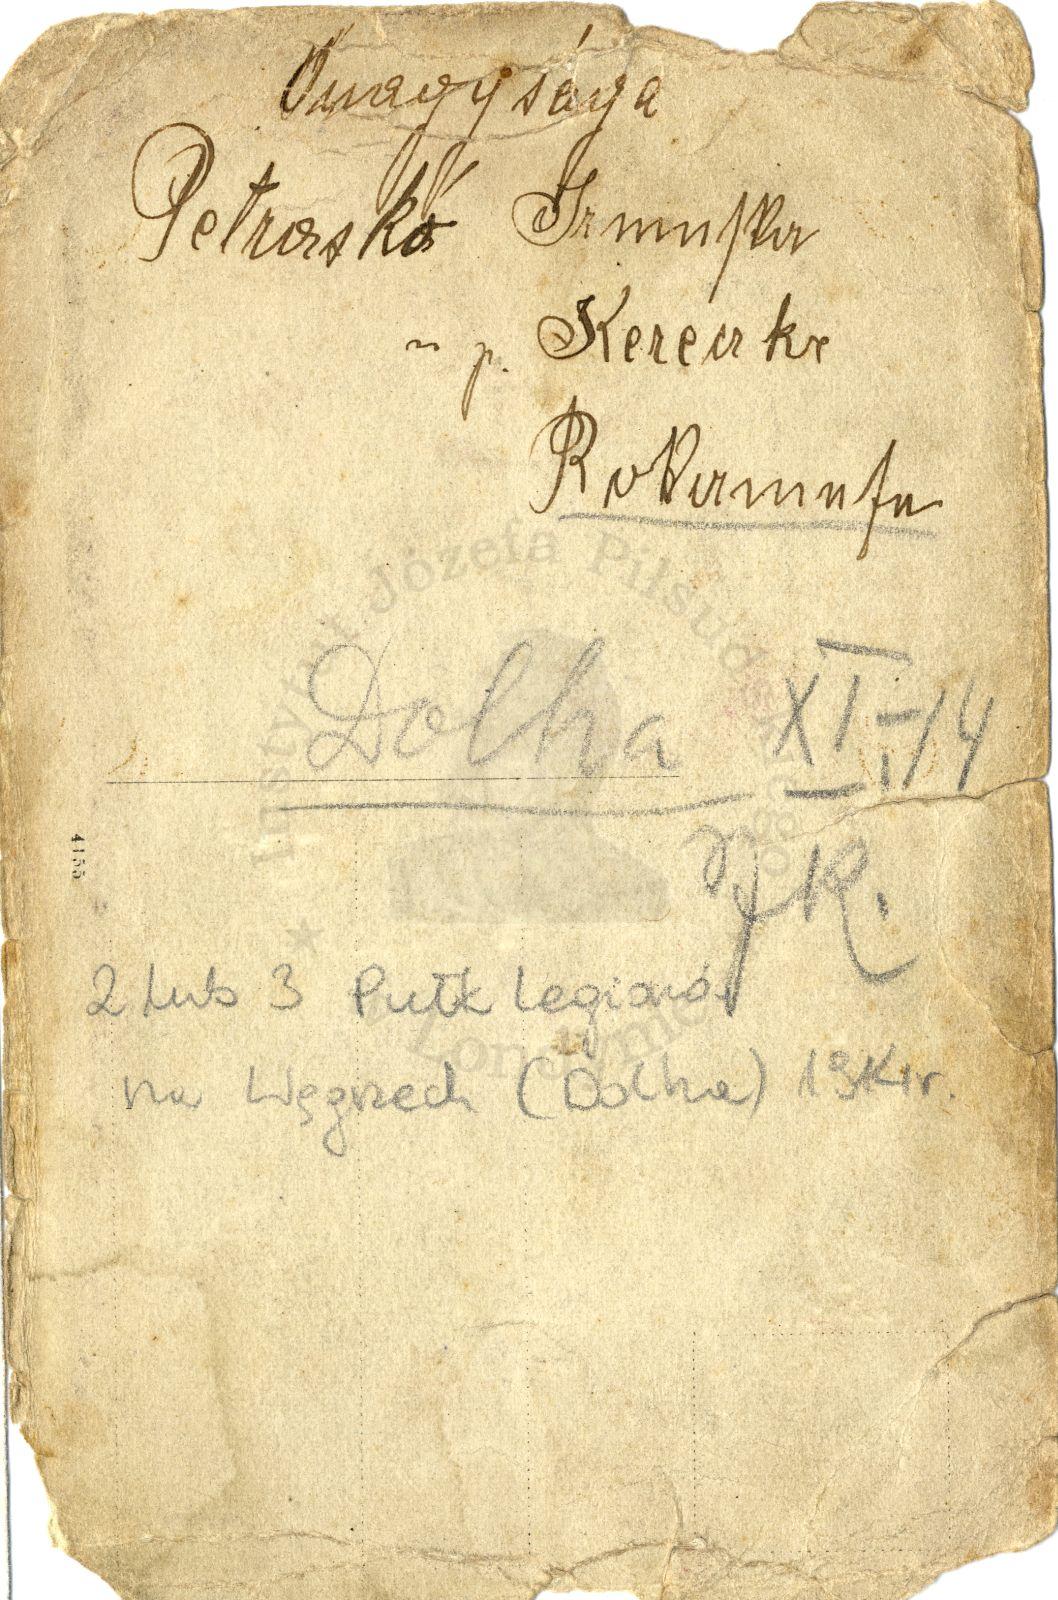 Őnagysága
Petraskó Irmuska
u p. Kerecke
Rokamufa
Dolha XI.14
JK.
2 lub 3 Pułk Legionów
na Węgrzech (Dolha) 1914r.
4155
Instytut Józefa Piłsudskiego
w Londynie